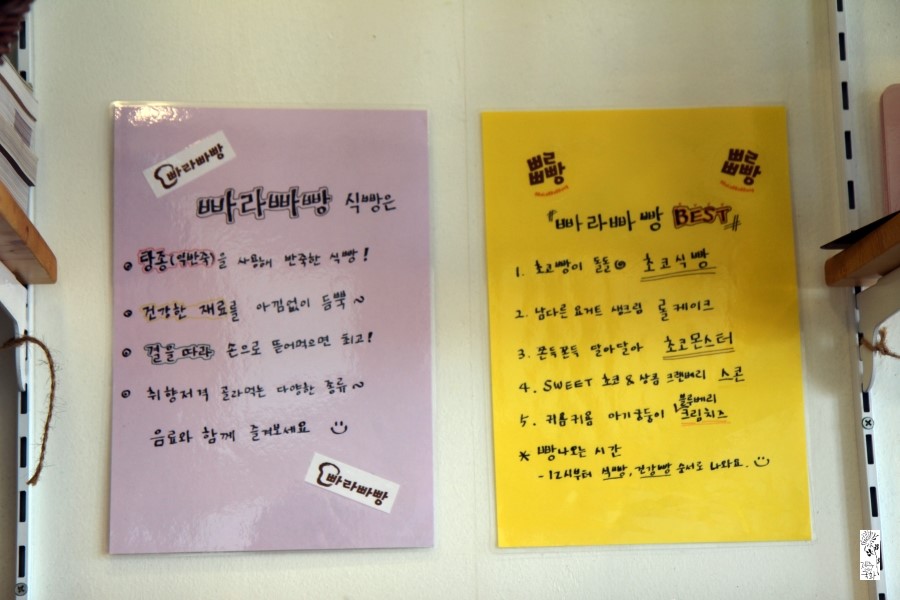 빠라빠빵
빠라빠빵 식빵은
탕종(익반죽)을 사용해 반죽한 식빵!
건강한 재료를 아낌없이 듬뿍~
결을 따라 손으로 뜯어먹으면 최고!
취향저격 골라먹는 다양한 종류~
음료와 함께 즐겨보세요
빠라빠빵
빠라빠빵
빠라빠빵
"빠라빠빵 BEST"
1. 초코빵이 돌돌 초코식빵
2. 남다른 요거트 생크림 롤케이크
3. 쫀득쫀득 달아달아 초코몬스터
4. SWEET 초코 & 상콤 크랜베리 스콘
5. 귀욤귀욤 아기궁둥이 블루베리 크림치즈
* 빵나오는 시간
- 12시부터 식빵, 건강빵 순서로 나와요.